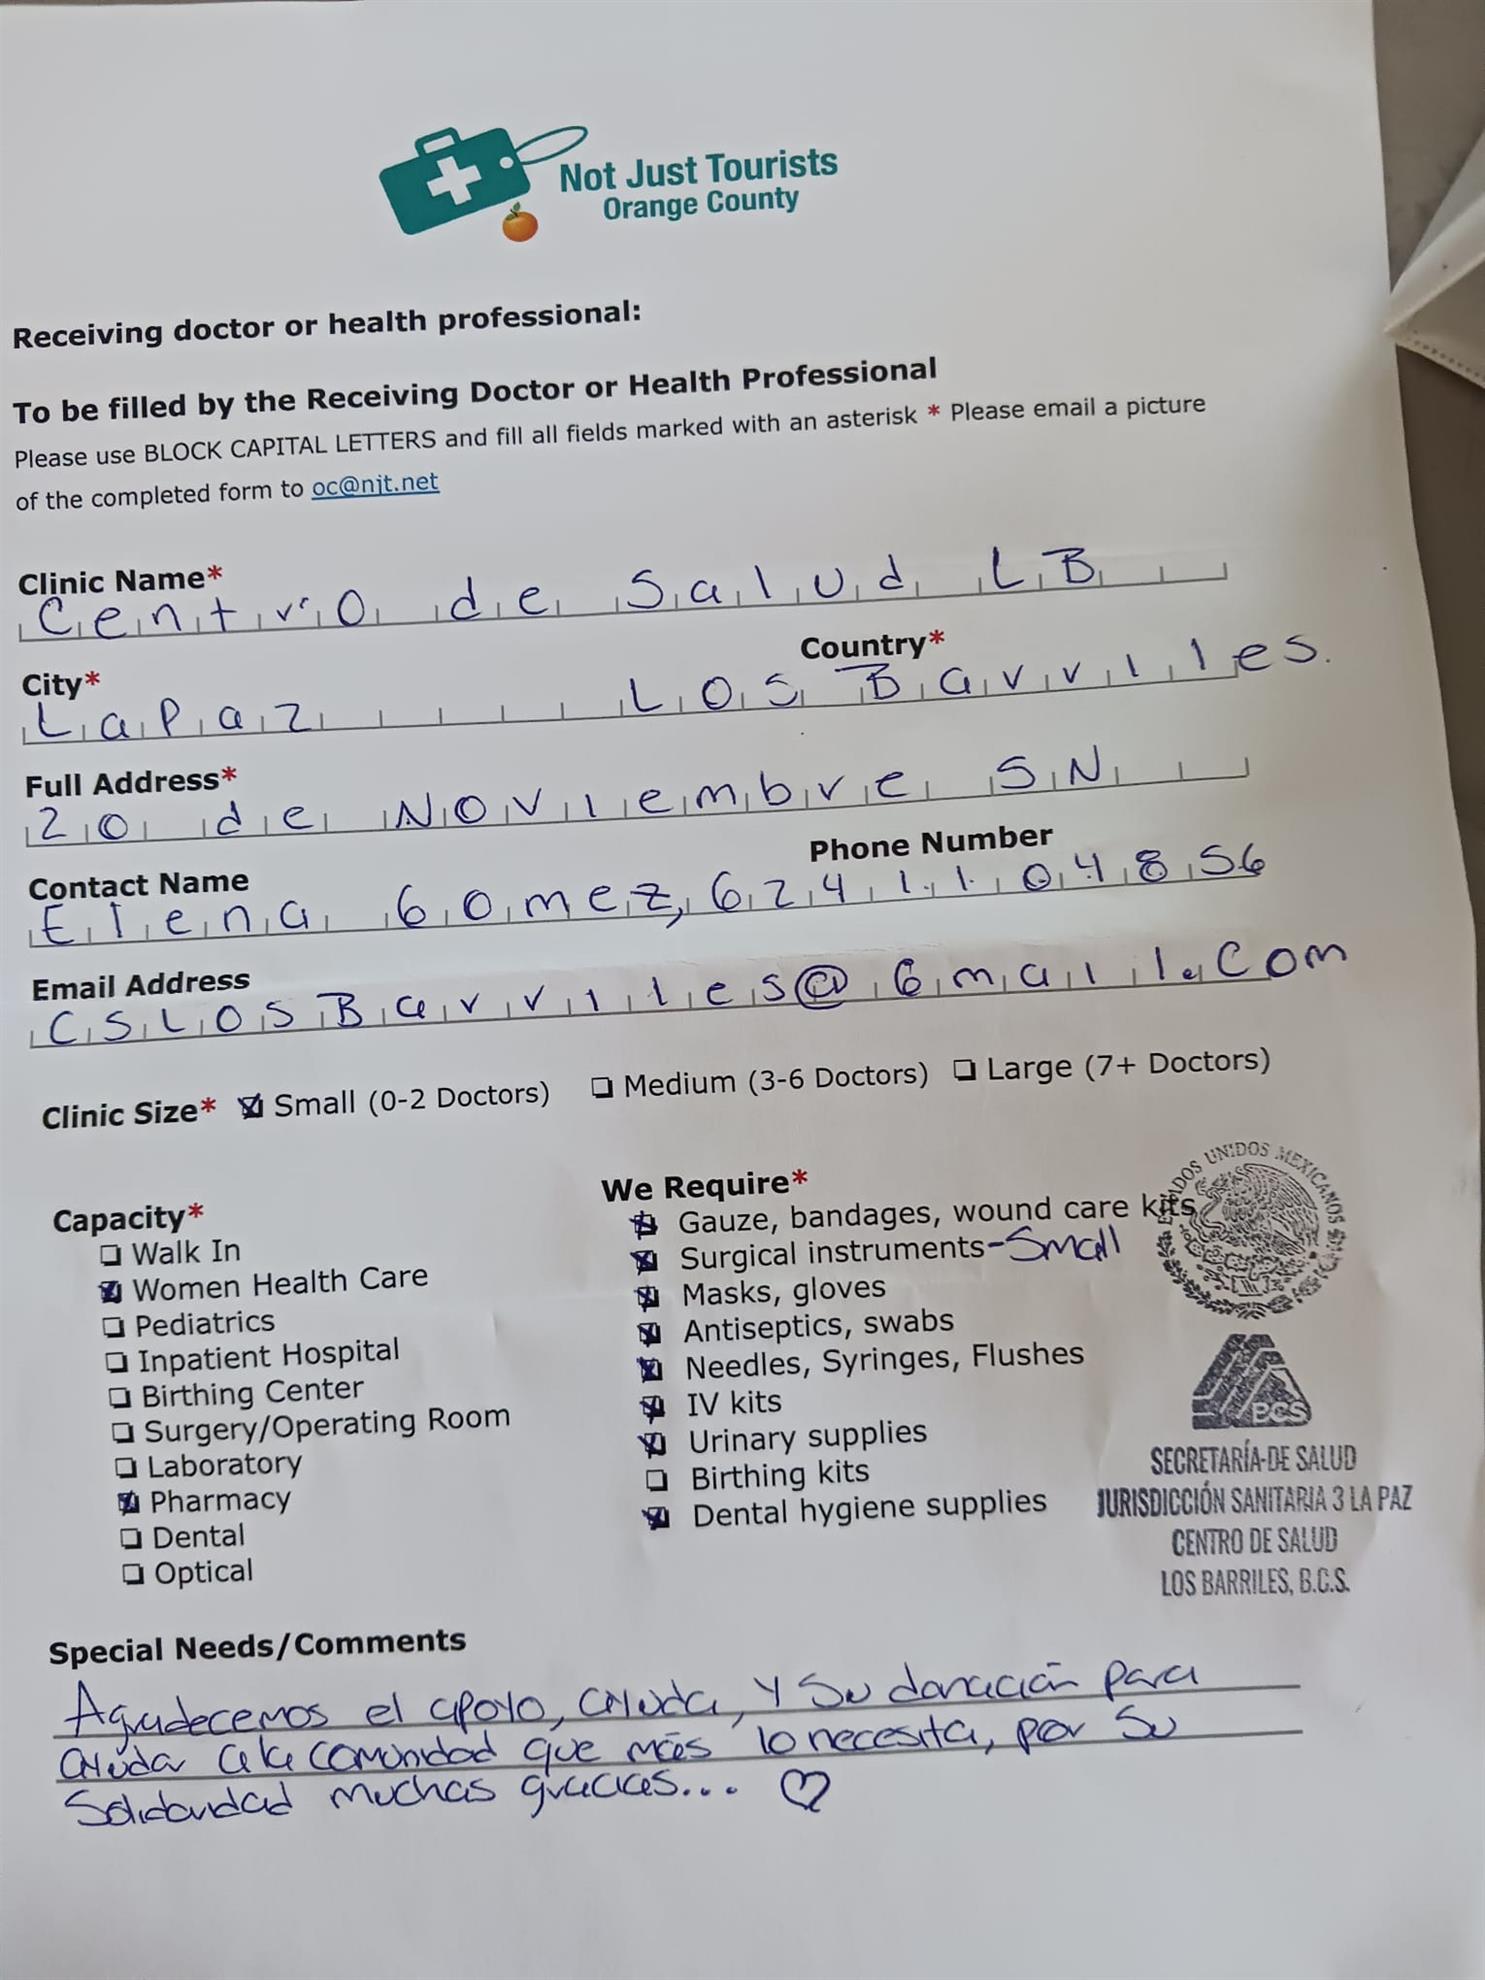 Not Just Tourists
Orange County
Receiving doctor or health professional:
To be filled by the Receiving Doctor or Health Professional
Please use BLOCK CAPITAL LETTERS and fill all fields marked with an asterisk * Please email a picture
of the completed form to oc@njt.net
Clinic Name*
Centro de Salud LB
City* Country*
LaPaz Los Barriles.
Full Address*
20 de Noviembre SN
Contact Name Phone Number
Elena Gomez, 624 11 04856
Email Address
CSLOSBarriles@Gmail.Com
Clinic Size* Small (0-2 Doctors) Medium (3-6 Doctors) Large (7+ Doctors)
Capacity*
Walk In
Women Health Care
Pediatrics
Inpatient Hospital
Birthing Center
Surgery/Operating Room
Laboratory
Pharmacy
Dental
Optical
We Require*
Gauze, bandages, wound care kits
Surgical instruments-Small
Masks, gloves
Antiseptics, swabs
Needles, Syringes, Flushes
IV kits
Urinary supplies
Birthing kits
Dental hygiene supplies
ESTADOS UNIDOS MEXICANOS
BCS
SECRETARÍA DE SALUD
JURISDICCIÓN SANITARIA 3 LA PAZ
CENTRO DE SALUD
LOS BARRILES, B.C.S.
Special Needs/Comments
Agradecemos el apoyo, ayuda, y su donación para
ayudar a la comunidad que más lo necesita, por su
Solidaridad muchas gracias... ♡